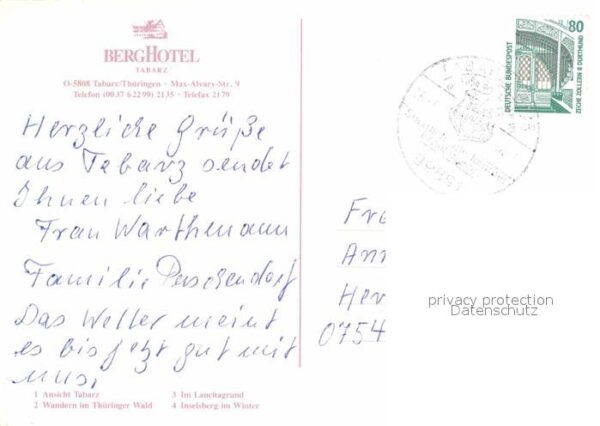 BERGHOTEL
TABARZ
O-5808 Tabarz/Thüringen · Max-Alvary-Str. 9
Telefon (00 37 6 22 99) 21 35 · Telefax 21 79
80
DEUTSCHE BUNDESPOST
ZECHE ZOLLERN II DORTMUND
Herzliche Grüße
aus Tabarz sendet
Ihnen liebe
Frau Warthemann
Familie
Das Wetter meint
es bis jetzt gut mit
uns.
Fr
Ann
Her
0754
privacy protection
Datenschutz
1 Ansicht Tabarz
2 Wandern im Thüringer Wald
3 Im Lauchagrund
4 Inselsberg im Winter